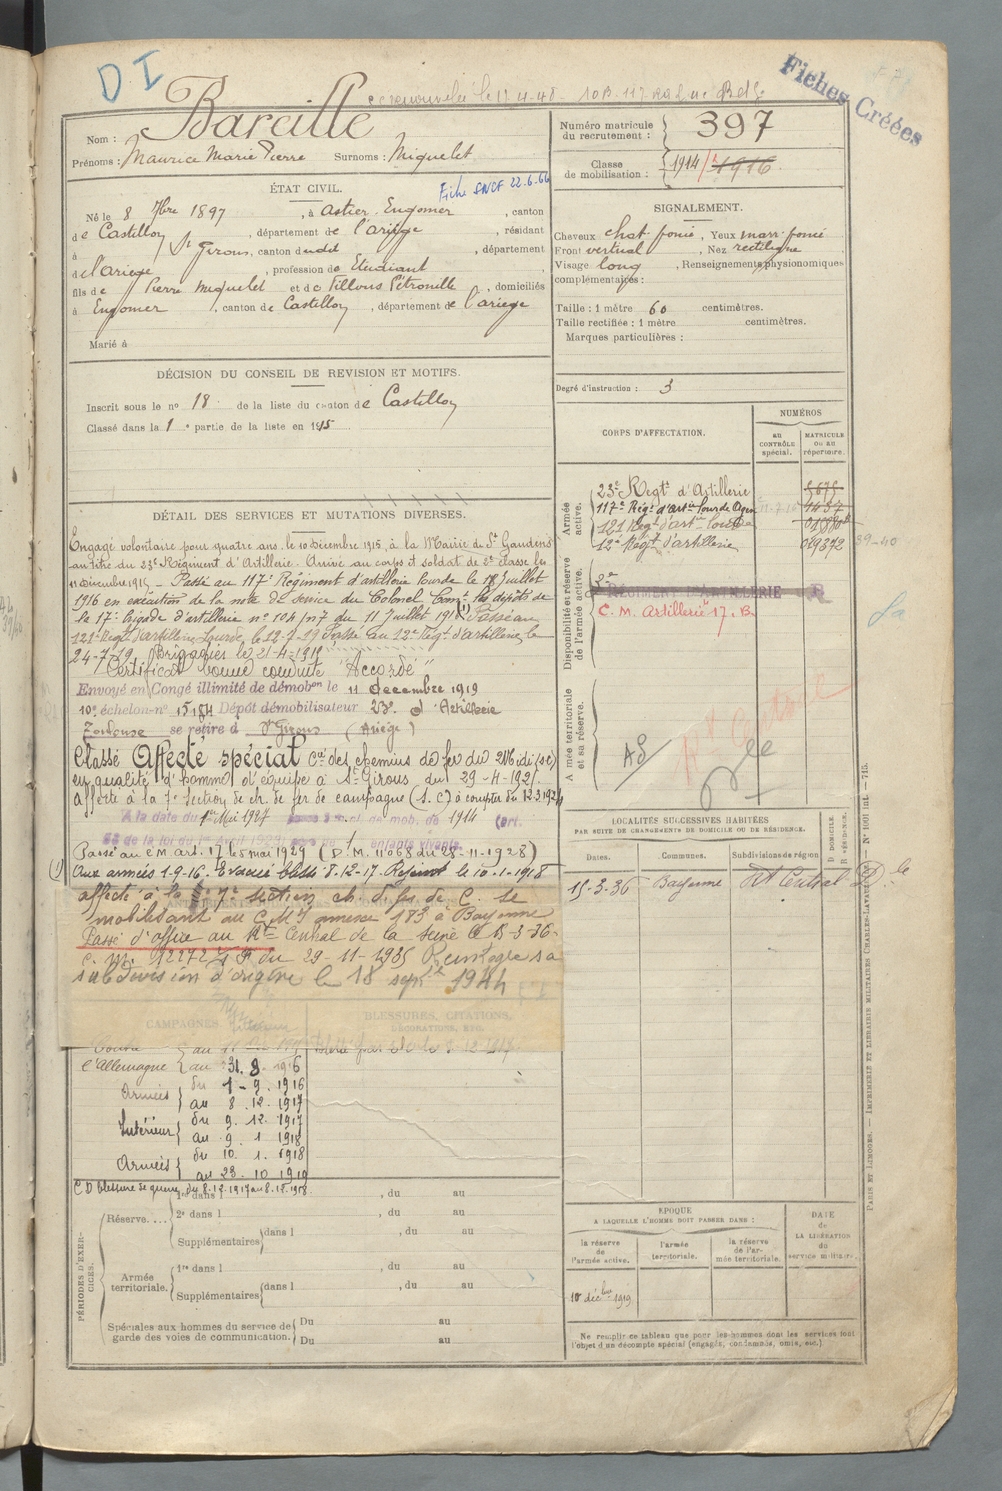 D I
Fiches Créées
Nom : Bareille
Prénoms : Maurice Marie Pierre Surnoms : Miquelet
Numéro matricule du recrutement : 397
Classe de mobilisation : 1914 / 1916
ÉTAT CIVIL.
Fiche SNCF 22.6.66
Né le 8 7bre 1897, à Astien Engomer, canton
de Castillon, département de l'ariège, résidant
à St Girons, canton dudit, département
de l'ariege, profession de Etudiant
fils de Pierre Miquelet et de Pillous Pétronille, domiciliés
à Engomer, canton de Castillon, département de l'ariege
Marié à
SIGNALEMENT.
Cheveux chat. foncé, Yeux marr. foncé
Front vertical, Nez rectiligne
Visage long, Renseignements physionomiques
complémentaires :
Taille : 1 mètre 60 centimètres.
Taille rectifiée : 1 mètre centimètres.
Marques particulières :
Degré d'instruction : 3
DÉCISION DU CONSEIL DE REVISION ET MOTIFS.
Inscrit sous le no 18 de la liste du canton de Castillon
Classé dans la 1e partie de la liste en 1915
DÉTAIL DES SERVICES ET MUTATIONS DIVERSES.
Engagé volontaire pour quatre ans, le 10 Décembre 1915, à la Mairie de St Gaudens
au titre du 23e Régiment d'Artillerie. Arrivé au corps et soldat de 2e classe les
11 Décembre 1915 – Passé au 117e Régiment d'artillerie lourde le 18 Juillet
1916 en exécution de la note de service du Colonel Comt les dépôts de
la 17e brigade d'artillerie no 104/n7 du 11 Juillet 1916 (1) Passé au
121e Régt d'artillerie Lourde, le 12-7-19 Passé au 12e Régt d'artillerie, le
24-7-19 Brigadier le 21-4-1919
Certificat bonne conduite "Accordé"
Envoyé en Congé illimité de démobon le 11 decembre 1919
10e échelon no 15184 Dépôt démobilisateur 23e d'Artillerie
Toulouse se retire à St Girons (Ariège)
Classé Affecté spécial Cie des chemins de fer du Midi
en qualité d'homme d'équipe à St Girons du 29-4-1921.
affecté à la 7e Section de ch. de fer de campagne (S.C) à compter du 12.3.1924
A la date du 1er Mai 1927 de mob. de 1914 (art.
58 de la loi du 1er Avril 1923) enfants vivants.
Passé au C M art. 17 le 5 mai 1929 (D.M. 11068 du 28-11-1928)
(1) Aux armées 1-9-16. Evacué blessé 8-12-17. Rejoint le 10-1-1918
affecté à la 7e section ch. d. fer de C. se
mobilisant au C.M.I annexe 183 à Bayonne
Passé d'office au Rt Central de la Seine le 15-3-36.
C. M. 12272 du 29-11-1935 Reintegre sa
subdivision d'origine le 18 septbre 1944
CORPS D'AFFECTATION.
NUMÉROS
AU CONTRÔLE spécial.
MATRICULE ou au répertoire.
Armée active.
23e Régt d'Artillerie
117e Régt d'art. lourde Agen
121 Régt d'art Lourde
12e Régt d'artillerie
Disponibilité et réserve de l'armée active.
RÉGIMENT D'ARTILLERIE
C. M. Artillerie 17. B
Armée territoriale et sa réserve.
AS
Rt Central
LOCALITÉS SUCCESSIVES HABITÉES
PAR SUITE DE CHANGEMENTS DE DOMICILE OU DE RÉSIDENCE.
Dates. Communes. Subdivisions de région D DOMICILE. R RÉSIDENCE.
15-3-36 Bayonne Rt Central D
CAMPAGNES.
BLESSURES, CITATIONS, DÉCORATIONS, ETC.
l'Allemagne au 31. 8. 1916
Armées du 1 - 9. 1916
au 8. 12. 1917
Intérieur du 9. 12. 1917
au 9. 1. 1918
Armées du 10. 1. 1918
au 23. 10 1919
C D blessure de guerre du 8-12-1917 au 8-12-1918.
PÉRIODES D'EXERCICES.
Réserve.... 1re dans l , du au
2e dans l , du au
Supplémentaires dans l , du au
Armée territoriale. 1re dans l , du au
Supplémentaires dans l , du au
Spéciales aux hommes du service de garde des voies de communication. Du au
Du au
EPOQUE
A LAQUELLE L'HOMME DOIT PASSER DANS :
la réserve de l'armée active.
l'armée territoriale.
la réserve de l'armée territoriale.
DATE de LA LIBÉRATION du service militaire.
10 décbre 1919
Ne remplir ce tableau que pour les hommes dont les services font
l'objet d'un décompte spécial (engagés, condamnés, omis, etc.)
PARIS ET LIMOGES. — IMPRIMERIE ET LIBRAIRIE MILITAIRES CHARLES-LAVAUZELLE